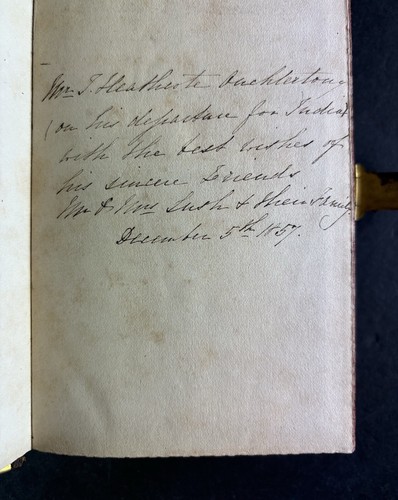 Mr T. Heathcote Ouchterlony
(on his departure for India)
with the best wishes of
his sincere Friends
Mr & Mrs Lush & their Family
December 5th 1857.